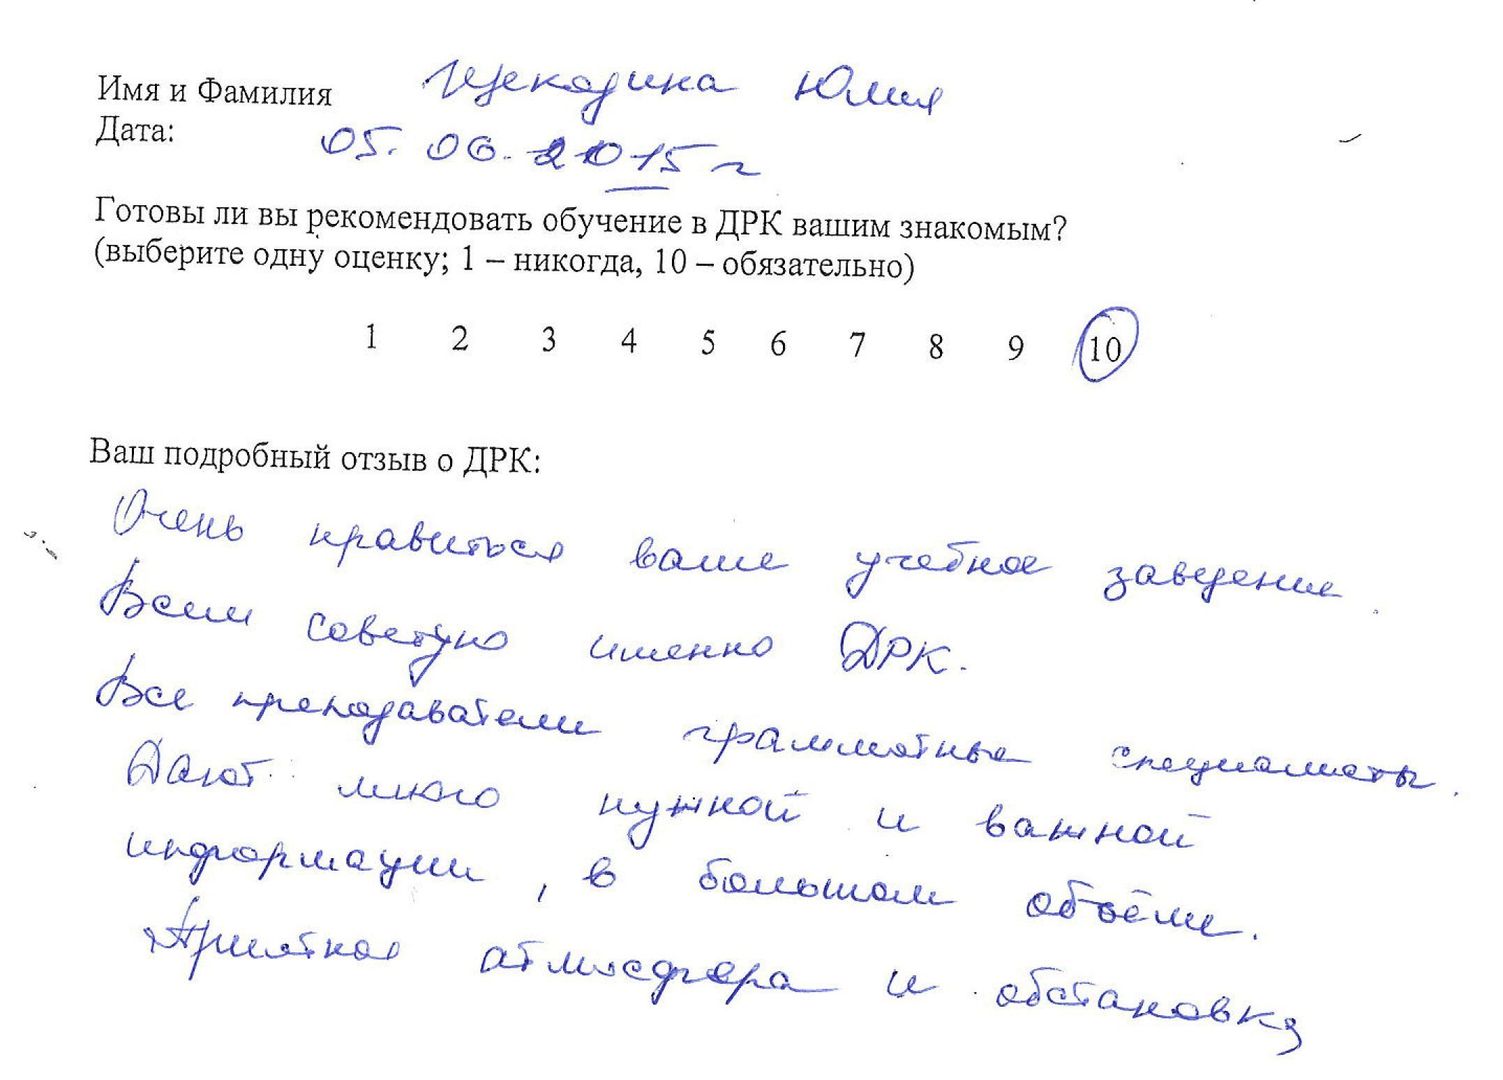 Имя и Фамилия Щекодина Юлия
Дата: 05.06.2015 г
Готовы ли вы рекомендовать обучение в ДРК вашим знакомым?
(выберите одну оценку; 1 – никогда, 10 – обязательно)
1 2 3 4 5 6 7 8 9 10
Ваш подробный отзыв о ДРК:
Очень нравиться ваше учебное заведение.
Всем советую именно ДРК.
Все преподаватели грамотные специалисты.
Дают много нужной и важной
информации, в большом объёме.
Приятная атмосфера и обстановка